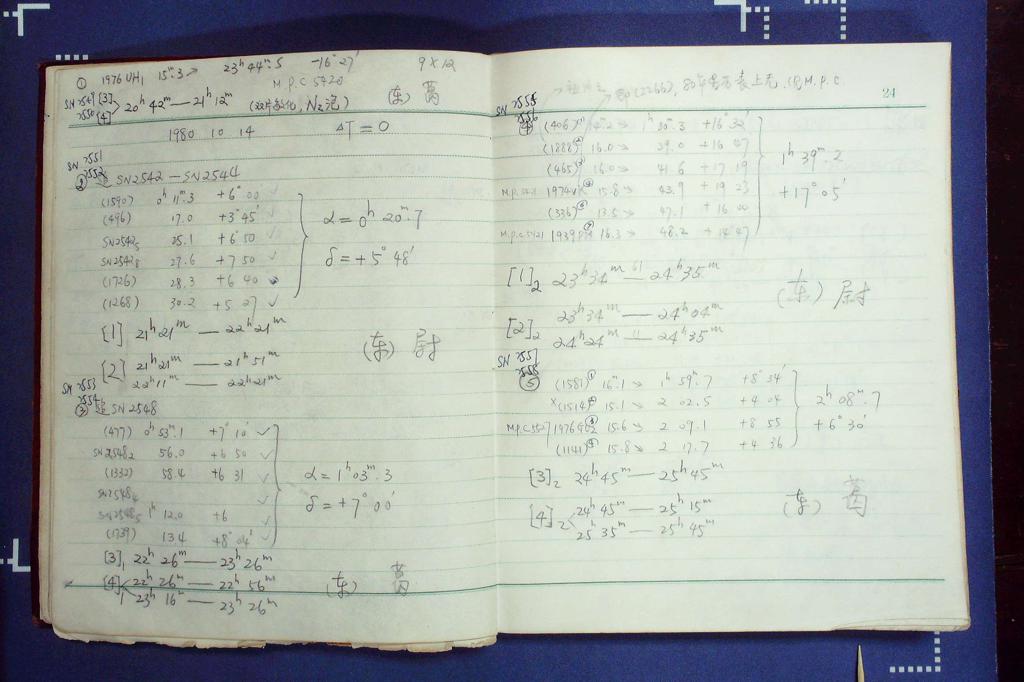 ① 1976 UH₁ 15ᵐ.3→ 23ʰ44ᵐ.5 -16°27′ 9×12
M.P.C 5420
SN 2549 [3]
2550 [4] 20ʰ42ᵐ—21ʰ12ᵐ (双片敏化, N₂泡) (东) 葛
1980 10 14 ΔT=0
SN 2551
2552
② SN2542—SN2544
(1590) 0ʰ11ᵐ.3 +6°00′ ✓
(496) 17.0 +3°45′ ✓
SN2542₅ 25.1 +6 50 ✓
SN2542₈ 27.6 +7 50 ✓
(1726) 28.3 +6 40 ✓
(1268) 30.2 +5 27 ✓
α=0ʰ20ᵐ.7
δ=+5°48′
[1] 21ʰ21ᵐ—22ʰ21ᵐ
[2] 21ʰ21ᵐ—21ʰ51ᵐ
22ʰ11ᵐ—22ʰ21ᵐ
(东) 尉
SN 2553
2554
③ SN2548
(477) 0ʰ53ᵐ.1 +7°10′ ✓
SN2548₂ 56.0 +6 50 ✓
(1332) 58.4 +6 31 ✓
SN2548₄ ✓
SN2548₅ 1ʰ12.0 +6 ✓
(1739) 13.4 +8°04′ ✓
α=1ʰ03ᵐ.3
δ=+7°00′
[3]₁ 22ʰ26ᵐ—23ʰ26ᵐ
[4]₁ 22ʰ26ᵐ—22ʰ56ᵐ
23ʰ16ᵐ—23ʰ26ᵐ
(东) 葛
即(2266), 80年 表上无, M.P.C.
24
SN 2555
2556
④ (406)① 14ᵐ.2→ 1ʰ30ᵐ.3 +16°32′
(1888)② 16.0→ 39.0 +16 47
(465)③ 16.0→ 41.6 +17 19
M.P.C 5421 1974 15.8→ 43.9 +19 23
(336) 13.5→ 47.1 +16 00
M.P.C 5421 1939 16.3→ 48.2 +14 47
1ʰ39ᵐ.2
+17°05′
[1]₂ 23ʰ34ᵐ—24ʰ35ᵐ
61
[2]₂ 23ʰ34ᵐ—24ʰ04ᵐ
24ʰ24ᵐ—24ʰ35ᵐ
11
(东) 尉
SN 2557
2558
⑤ (1581)① 16ᵐ.1→ 1ʰ59ᵐ.7 +8°34′
×(1514) 15.1→ 2 02.5 +4 04
M.P.C 5527 1976 15.6→ 2 09.1 +8 55
(1141) 15.8→ 2 17.7 +4 36
2ʰ08ᵐ.7
+6°30′
[3]₂ 24ʰ45ᵐ—25ʰ45ᵐ
[4]₂ 24ʰ45ᵐ—25ʰ15ᵐ
25ʰ35ᵐ—25ʰ45ᵐ
(东) 葛